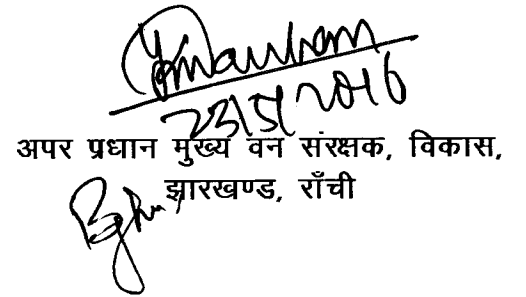 23/5/2016
अपर प्रधान मुख्य वन संरक्षक, विकास,
झारखण्ड, राँची